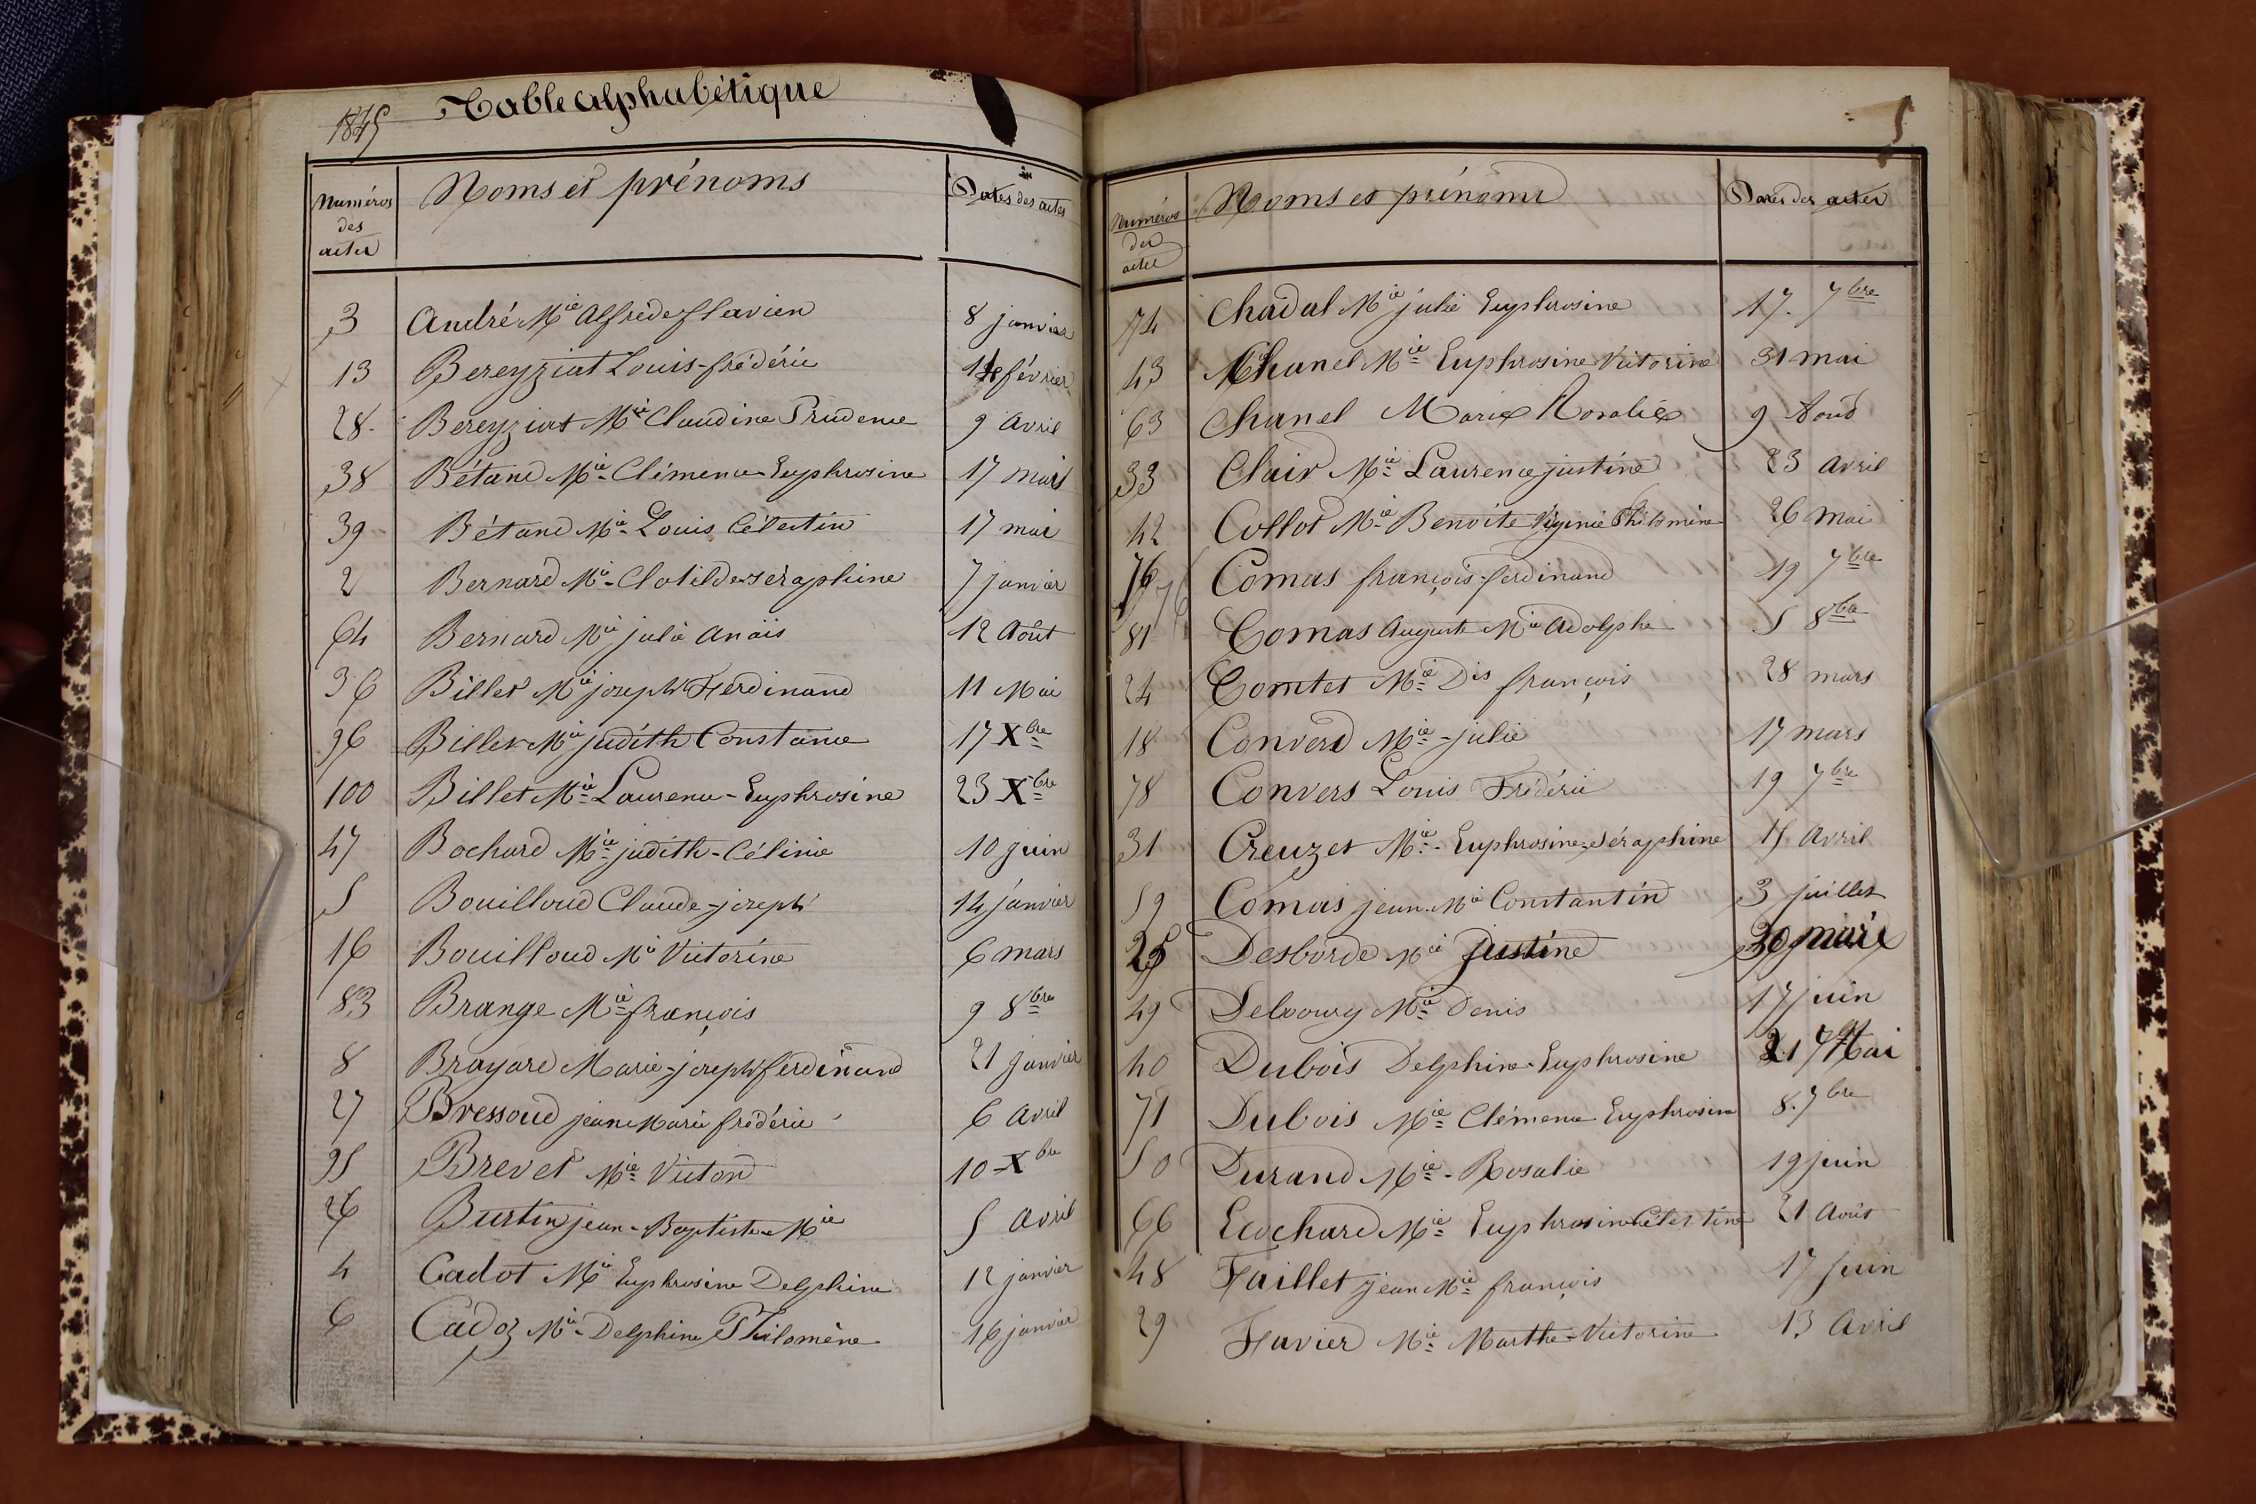 1845 Table alphabétique
Numéros des actes Noms et prénoms Dates des actes
3 André Mie Alfrède flavien 8 janvier
13 Bereyziat Louis-frédéric 14 février
28 Bereyziat Mie Claudine Prudence 9 Avril
38 Bétand Mie Clémence Euphrosine 17 mai
39 Bétand Mie Louis Célestin 17 mai
2 Bernard Mie Clotilde séraphine 7 janvier
64 Bernard Mie julie Anaïs 12 Août
36 Billet Mie joseph Ferdinand 11 Mai
96 Billet Mie judith Constance 17 Xbre
100 Billet Mie Laurence-Euphrosine 23 Xbre
47 Bochard Mie judith-Célinie 10 juin
5 Bouilloud Claude-joseph 14 janvier
16 Bouilloud Mie Victorine 6 mars
83 Brange Mie françois 9 8bre
8 Brayard Marie-joseph ferdinand 21 janvier
27 Bressoud jean Marie frédéric 6 Avril
95 Brevet Mie Victor 10 Xbre
26 Burtin jean-Baptiste Mie 5 Avril
4 Cadot Mie Euphrosine Delphine 12 janvier
6 Cadoz Mie Delphine Philomène 16 janvier
5
Numéros des actes Noms et prénoms Dates des actes
74 Chadal Mie julie Euphrosine 17. 7bre
43 Chanel Mie Euphrosine Victorine 31 mai
63 Chanel Marie Rosalie 9 Août
33 Clair Mie Laurence justine 23 Avril
42 Collot Mie Benoite Virginie Philomène 26 Mai
76 76 Comas françois-ferdinand 19 7bre
81 Comas Auguste Mie Adolphe 5 8bre
24 Comtet Mie Dis françois 28 mars
18 Convers Mie-julie 17 mars
78 Convers Louis Frédéric 19 7bre
31 Creuzet Mie-Euphrosine Séraphine 15 Avril
59 Comas jean Mie Constantin 3 juillet
25 Desborde Mie justine 30 mars
49 Mie Denis 17 juin
40 Dubois Delphine-Euphrosine 21 Mai
71 Dubois Mie Clémence Euphrosine 8. 7bre
50 Durand Mie-Rosalie 19 juin
66 Ecochard Mie Euphrosine Célestine 21 Août
48 Faillet jean Mie françois 17 juin
29 Favier Mie Marthe-Victorine 13 Avril